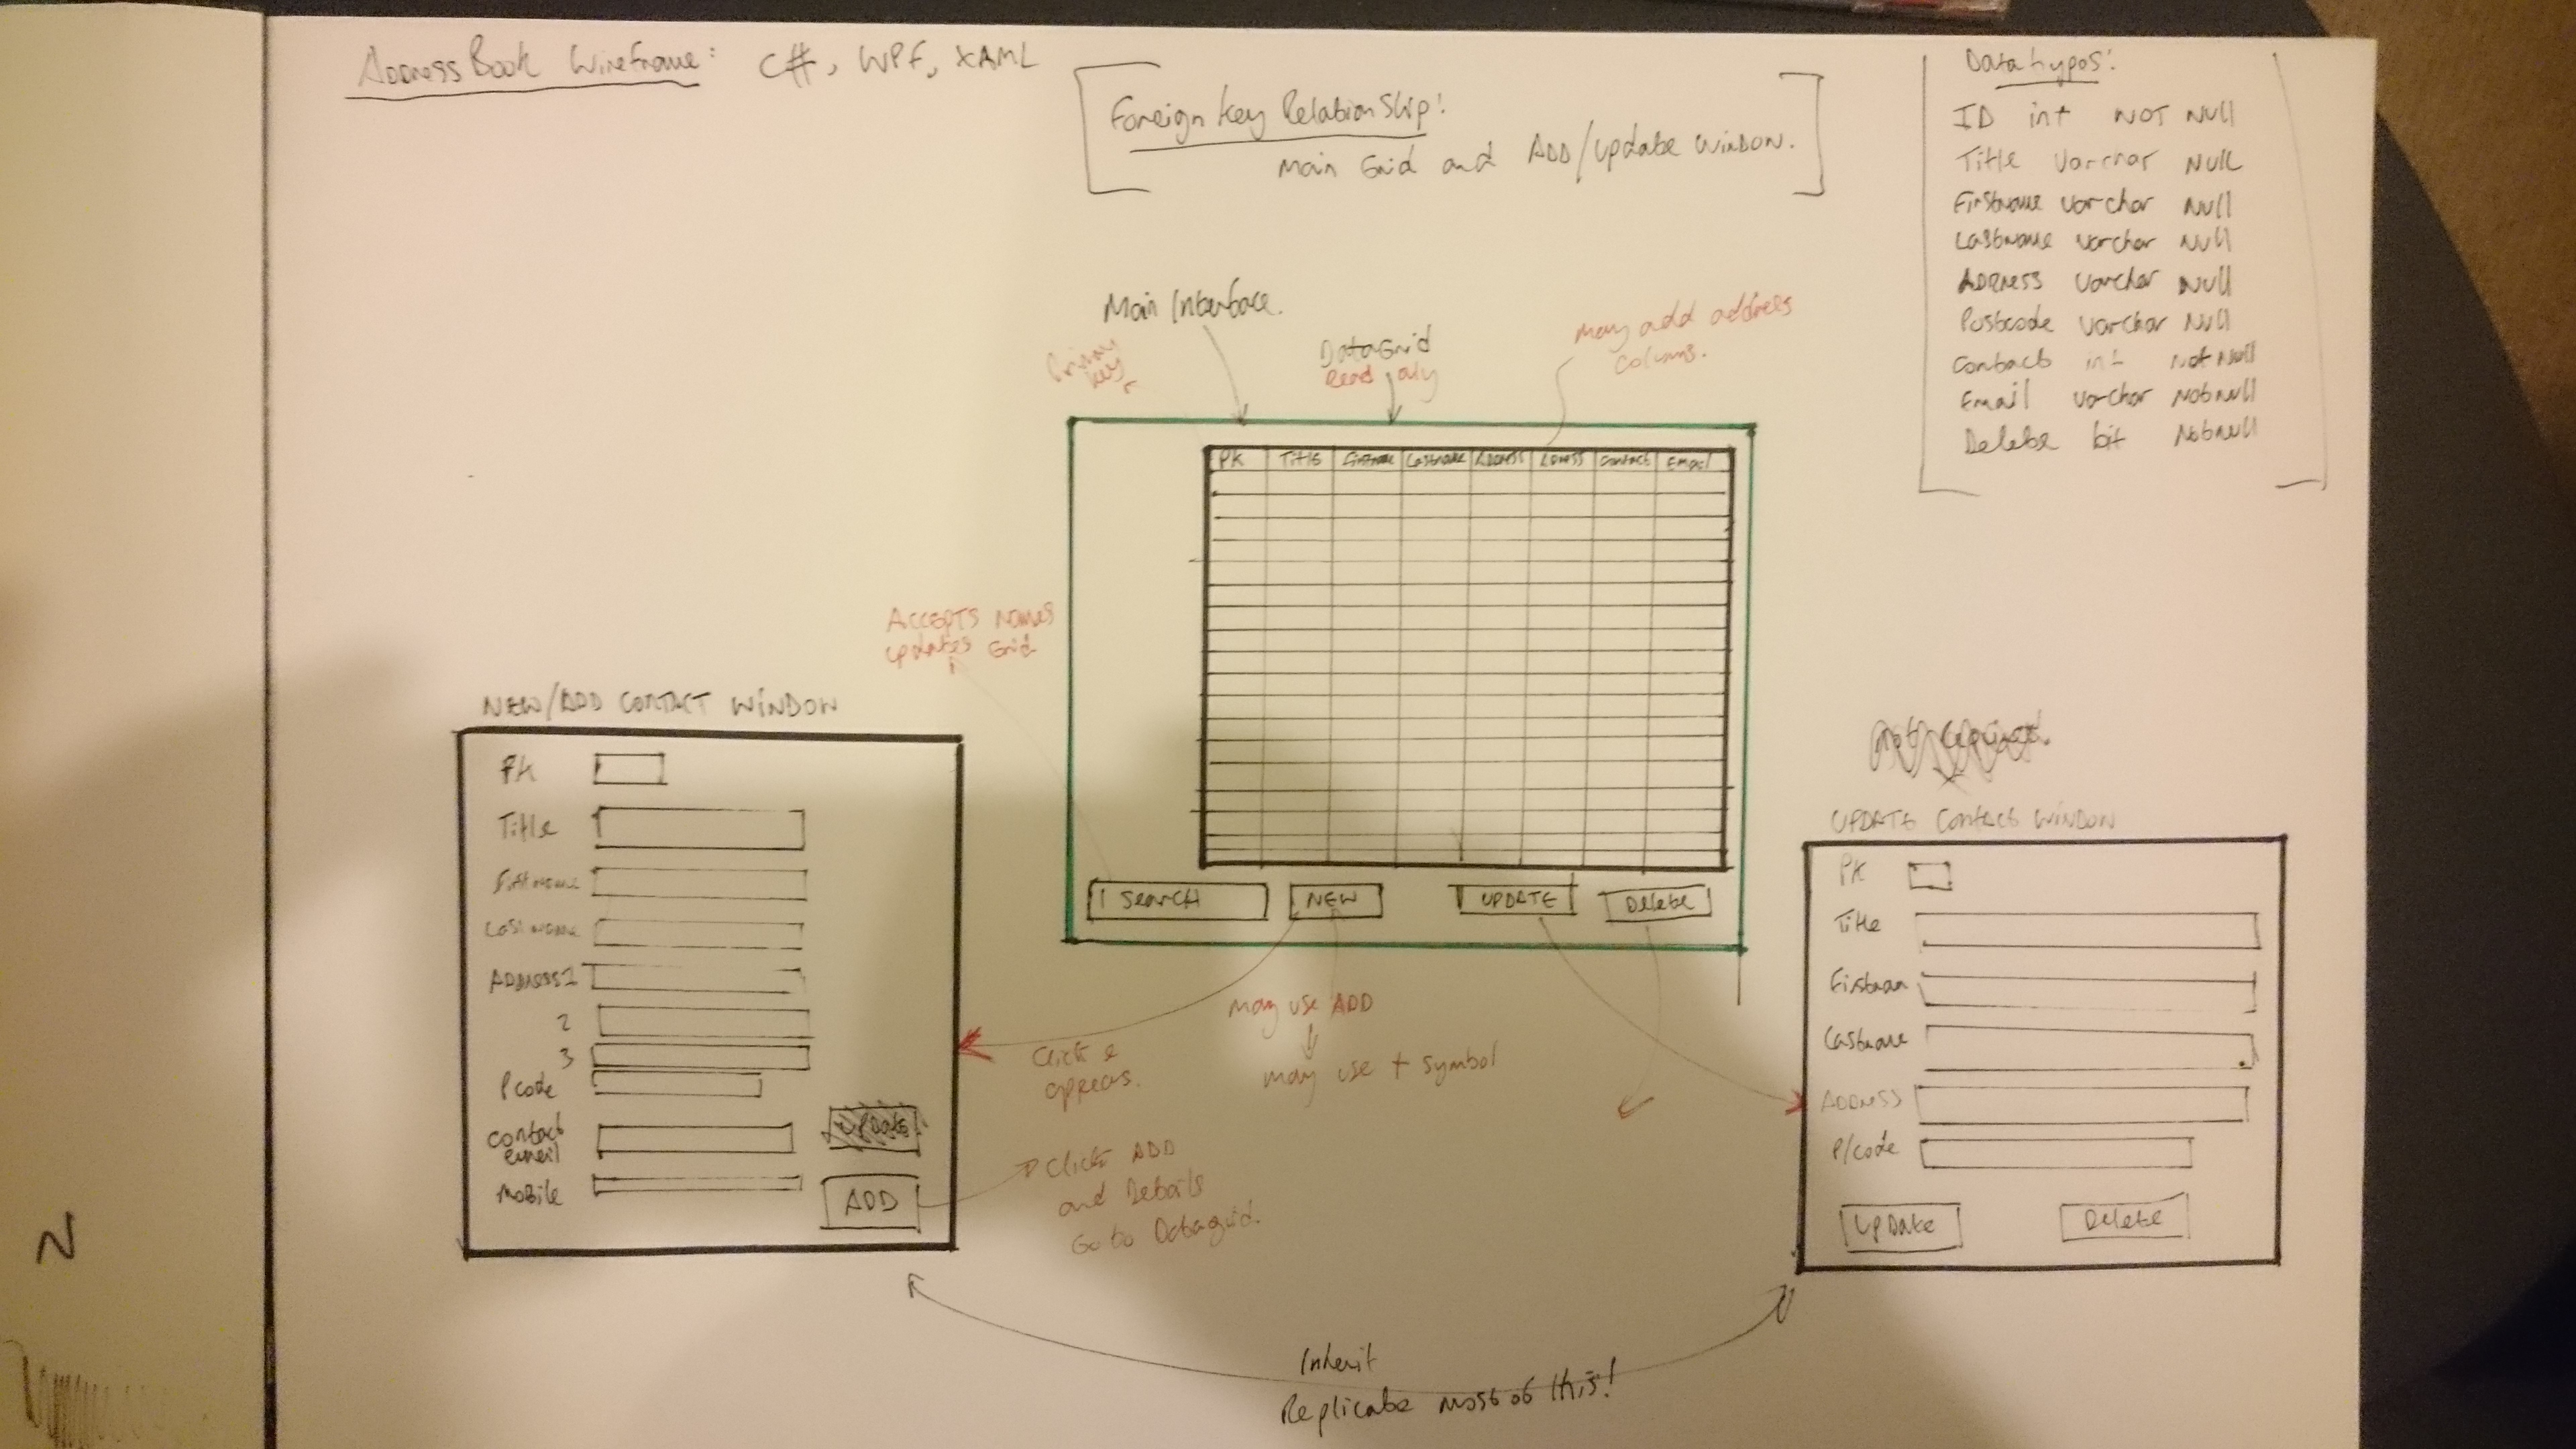 Address Book Wireframe: C#, WPF, XAML
Foreign Key Relationship:
Main Grid and ADD/update Window.
Datatypes:
ID int NOT NULL
Title Varchar NULL
Firstname Varchar NULL
Lastname Varchar NULL
Address Varchar NULL
Postcode Varchar NULL
Contact int Not Null
Email Varchar Not null
Delete bit Not null
Main Interface.
Primary
Key
DataGrid
Read only
May add address
columns.
PK Title Firstname Lastname Address Address Contact Email
Accepts Names
updates Grid
Search NEW UPDATE Delete
NEW/ADD CONTACT WINDOW
PK
Title
Firstname
Last name
Address1
2
3
Pcode
Contact
email
Mobile
UPDATE
ADD
Click &
appears.
may use ADD
may use + symbol
Click ADD
and Details
Go to Datagrid.
Not required.
UPDATE Contact WINDOW
PK
Title
Firstnam
Lastname
Address
P/code
Update Delete
Inherit
Replicate most of this!
N